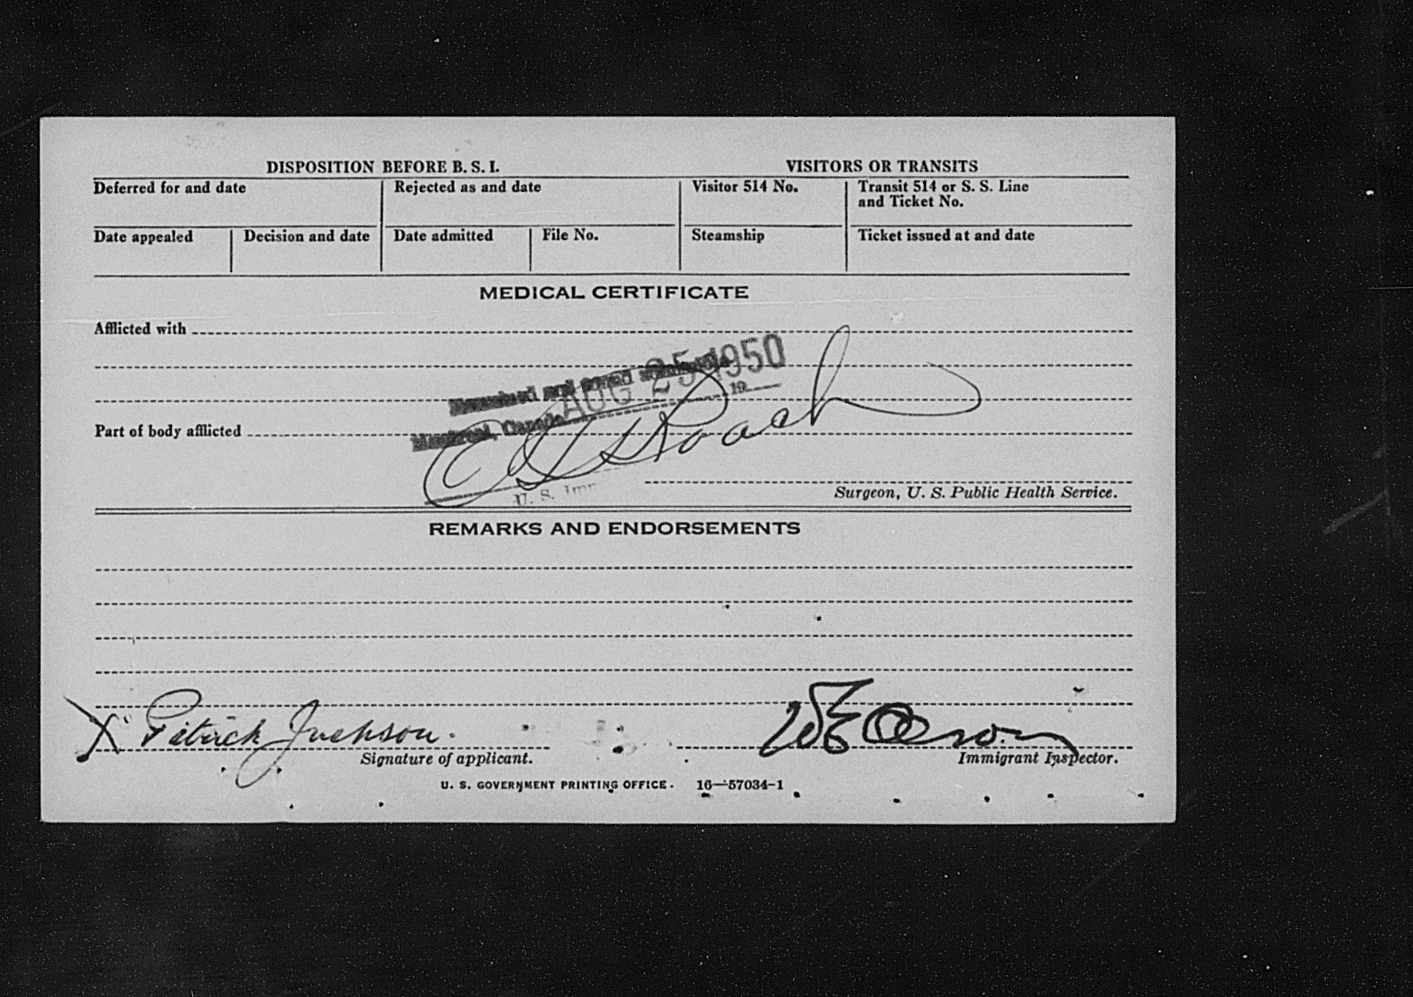 DISPOSITION BEFORE B. S. I.
VISITORS OR TRANSITS
Deferred for and date
Rejected as and date
Visitor 514 No.
Transit 514 or S. S. Line
and Ticket No.
Date appealed
Decision and date
Date admitted
File No.
Steamship
Ticket issued at and date
MEDICAL CERTIFICATE
Afflicted with
AUG 25 1950
and
19
Montreal, Canada
Part of body afflicted
Roach
U. S.
Surgeon, U. S. Public Health Service.
REMARKS AND ENDORSEMENTS
X Patrick Jackson.
Signature of applicant.
Immigrant Inspector.
U. S. GOVERNMENT PRINTING OFFICE. 16—57034-1